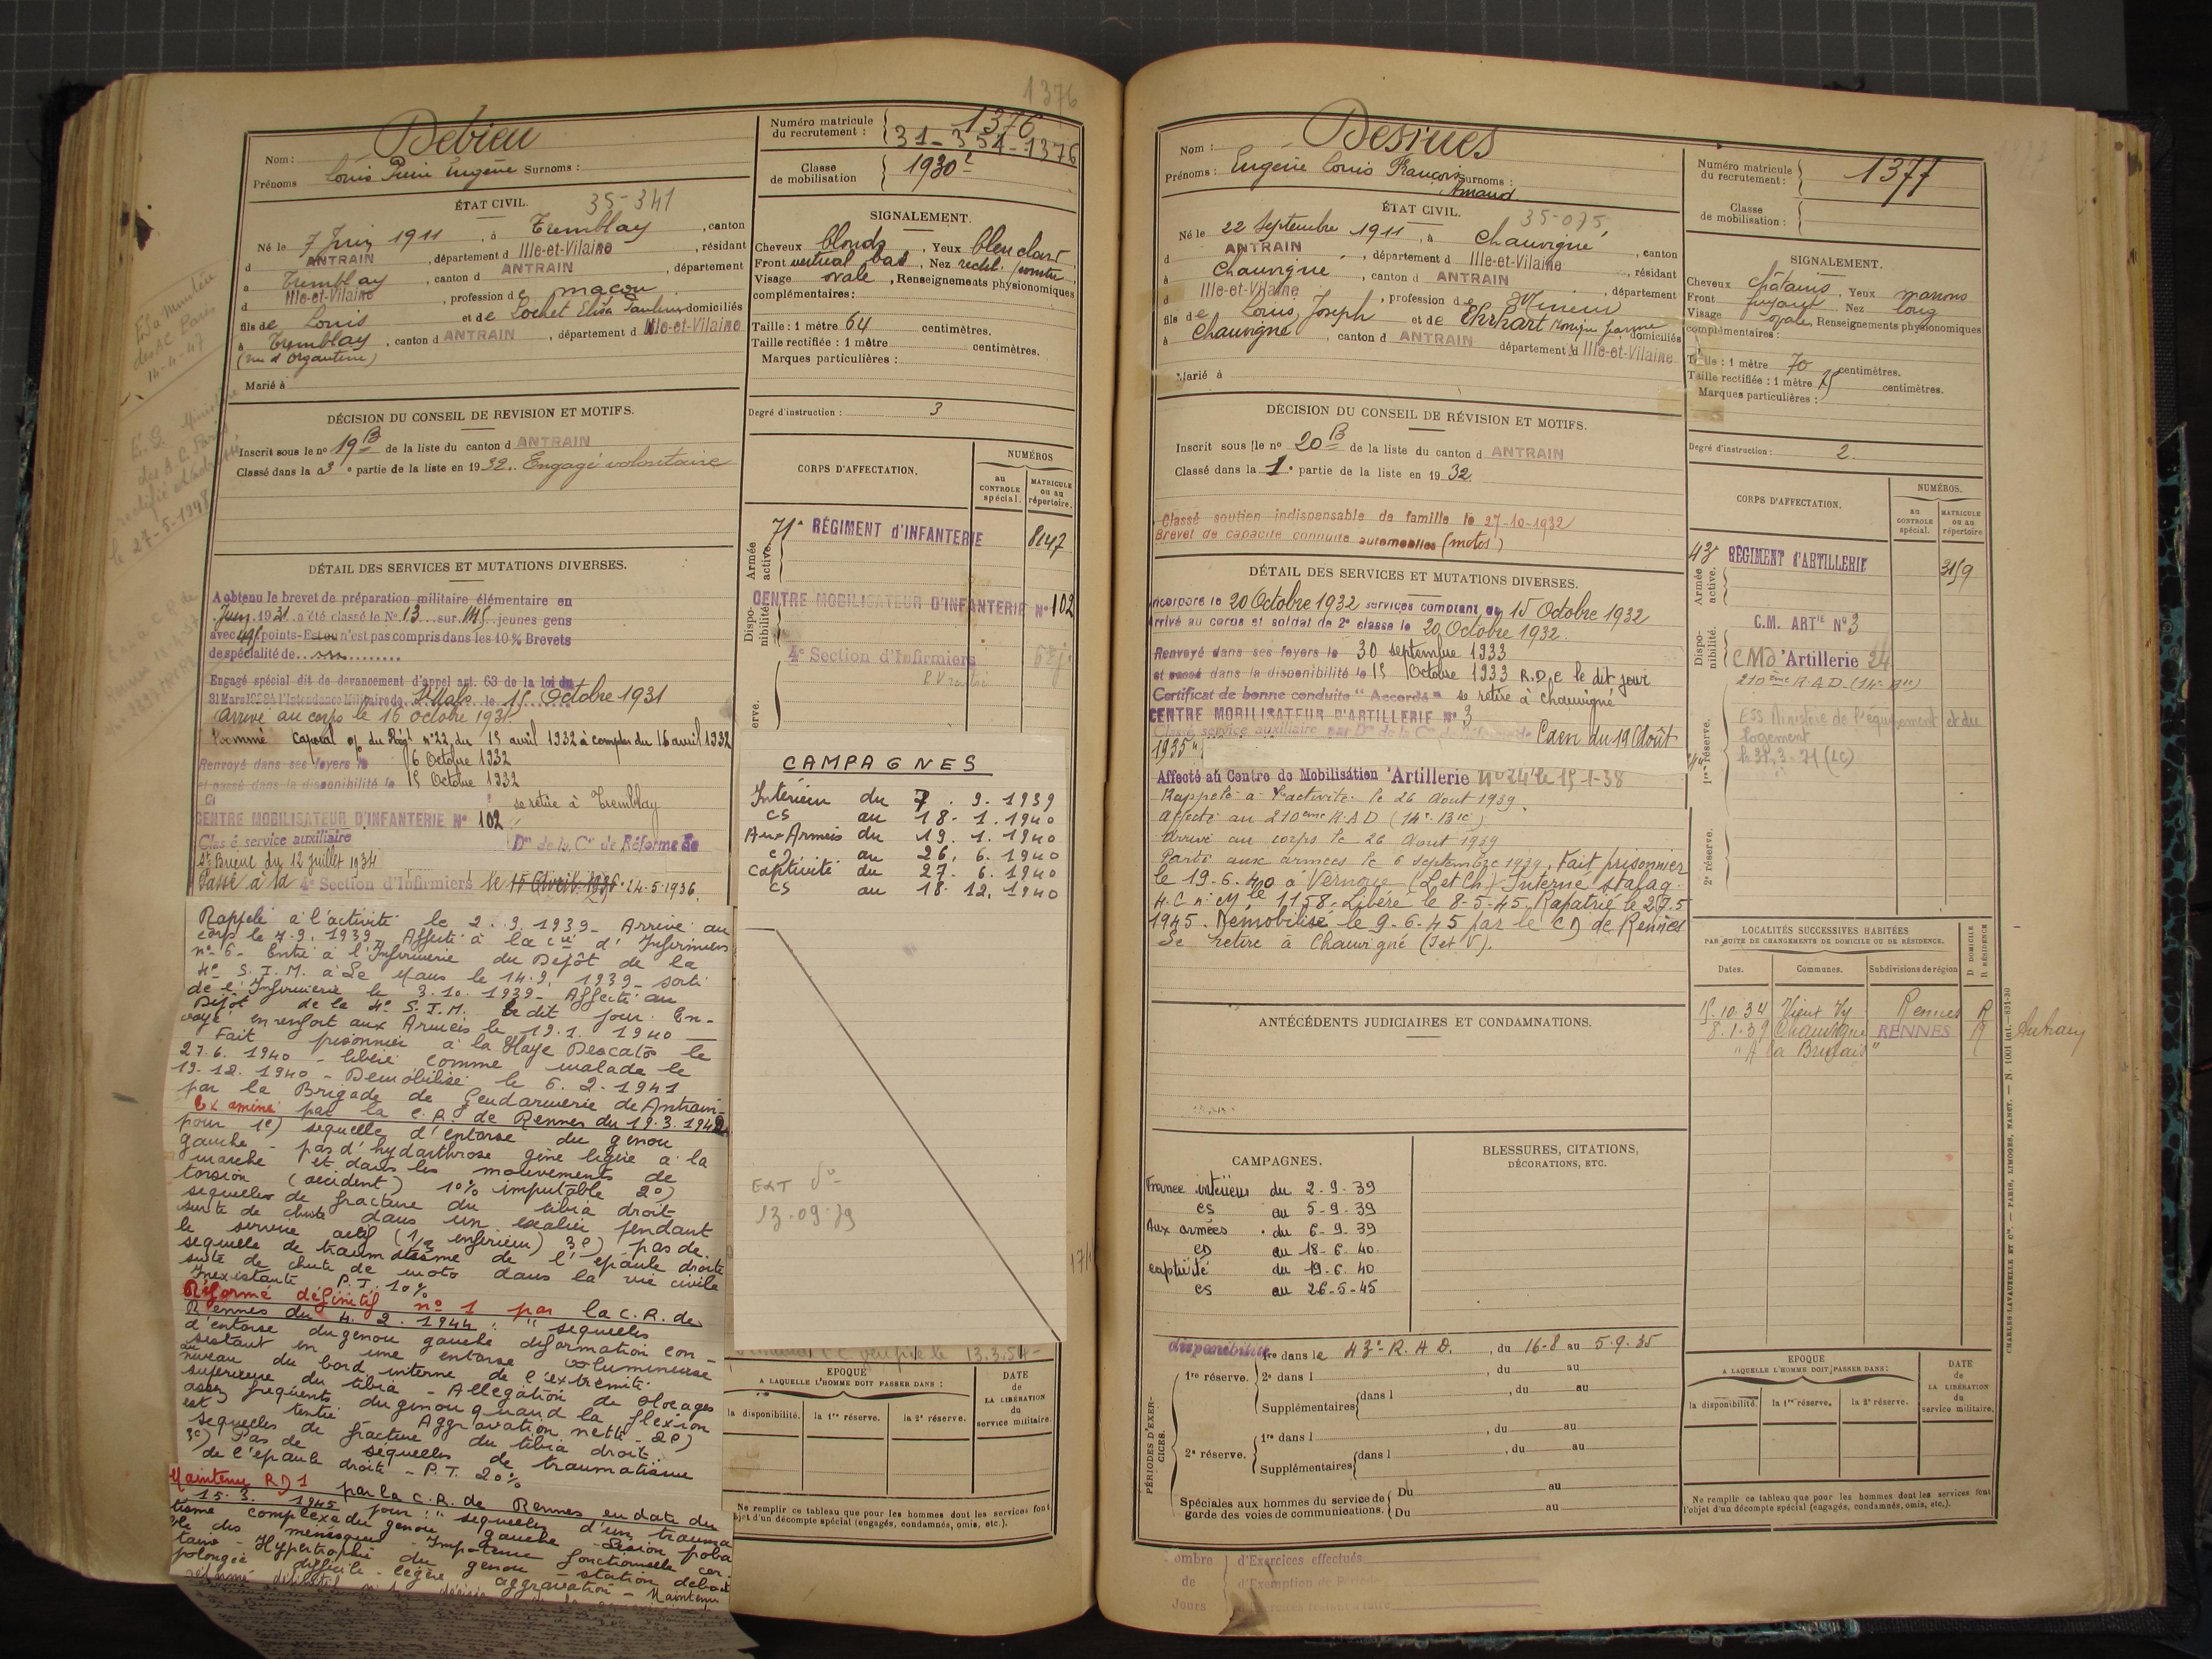 1376
Nom : Debieu
Prénoms Louis Pierre Eugène Surnoms :
Numéro matricule du recrutement : 1376
31-354-1376
Classe de mobilisation 1930
ÉTAT CIVIL.
35-341
Né le 7 Juin 1911, à Tremblay, canton
d ANTRAIN, département d Ille-et-Vilaine, résidant
à Tremblay, canton d ANTRAIN, département
d Ille-et-Vilaine, profession de maçon
fils de Louis et de Lochet Elisa domiciliés
à Tremblay, canton d ANTRAIN, département d Ille-et-Vilaine
Marié à
SIGNALEMENT.
Cheveux blonds, Yeux bleu clair
Front vertical bas, Nez rectil.
Visage ovale, Renseignements physionomiques
complémentaires :
Taille : 1 mètre 64 centimètres.
Taille rectifiée : 1 mètre centimètres.
Marques particulières :
Degré d'instruction : 3
DÉCISION DU CONSEIL DE REVISION ET MOTIFS.
Inscrit sous le no 19 B de la liste du canton d ANTRAIN
Classé dans la 3e partie de la liste en 1932. Engagé volontaire
CORPS D'AFFECTATION.
NUMÉROS
au CONTROLE spécial.
MATRICULE ou au répertoire.
Armée active.
71e RÉGIMENT D'INFANTERIE 8147
Disponibilité
CENTRE MOBILISATEUR D'INFANTERIE No 102
4e Section d'Infirmiers
DÉTAIL DES SERVICES ET MUTATIONS DIVERSES.
A obtenu le brevet de préparation militaire élémentaire en
Juin 1931 a été classé le No 13 sur 145 jeunes gens
avec points - Est ou n'est pas compris dans les 10 % Brevets
de spécialité de
Engagé spécial dit de devancement d'appel art. 63 de la loi du
31 Mars 1928 à l'Intendance Militaire de St Malo le 15 Octobre 1931
Arrivé au corps le 16 octobre 1931
Nommé Caporal o/ du Régt no 22 du 15 avril 1932 à compter du 16 avril 1932
Renvoyé dans ses foyers le 16 Octobre 1932
et passé dans la disponibilité le 15 Octobre 1932
se retire à Tremblay
CENTRE MOBILISATEUR D'INFANTERIE No 102
Classé service auxiliaire Don de la Con de Réforme de
St Brieuc du 12 juillet 1934
Passé à la 4e Section d'Infirmiers le 15 Avril 1936. 24-5-1936.
Rappelé à l'activité le 2.9.1939 - Arrivé au
corps le 7.9.1939 Affecté à la Cie d'Infirmiers
no 6 - Entré à l'Infirmerie du Dépôt de la
4e S.I.M. à Le Mans le 14.9.1939 - sorti
de l'Infirmerie le 3.10.1939 - Affecté au
Dépôt de la 4e S.I.M. le dit jour. En-
voyé en renfort aux Armées le 19.1.1940
Fait prisonnier à la Haye Descatos le
27.6.1940 - libéré comme malade le
19.12.1940 - Démobilisé le 6.2.1941
par la Brigade de Gendarmerie de Antrain -
Examiné par la C.R. de Rennes du 19.3.1942
pour 1o) sequelle d'entorse du genou
gauche - pas d'hydarthrose gêne légère à la
marche et dans les mouvements de
torsion (accident) 10% imputable 2o)
sequelles de fracture du tibia droit
suite de chute dans un escalier pendant
le service actif (1/3 inférieur) 3o) pas de
sequelle de traumatisme de l'épaule droite
suite de chute de moto dans la vie civile
Inexistante P.I. 10%
Réformé définitif no 1 par la C.R. de
Rennes du 4.2.1944 : " sequelles
d'entorse du genou gauche déformation con-
sistant en une entorse volumineuse
au niveau du bord interne de l'extrémité
supérieure du tibia - Allegation de blocages
assez fréquents du genou quand la flexion
est tentée - Aggravation nette - 2o)
sequelles de fracture du tibia droit.
3o) Pas de sequelles de traumatisme
de l'épaule droite - P.I. 20%
Maintenu RD 1 par la C.R. de Rennes en date du
15.3.1945 pour : " sequelles d'un trauma
tisme complexe du genou gauche - Lésion proba
ble des ménisques - Impotence fonctionnelle cer-
taine - Hypertrophie du genou - station debout
prolongée difficile - légère aggravation - Maintenu
CAMPAGNES
Intérieur du 7.9.1939
cs au 18.1.1940
Aux Armées du 19.1.1940
cs au 26.6.1940
Captivité du 27.6.1940
cs au 18.12.1940
13.3.54
EPOQUE
A LAQUELLE L'HOMME DOIT PASSER DANS :
la disponibilité. la 1re réserve. la 2e réserve.
DATE de LA LIBÉRATION du service militaire.
Ne remplir ce tableau que pour les hommes dont les services font
l'objet d'un décompte spécial (engagés, condamnés, omis, etc.).
Nom : Desrues
Prénoms : Eugène Louis François Surnoms :
Amand
Numéro matricule du recrutement : 1377
Classe de mobilisation :
ÉTAT CIVIL.
35-075
Né le 22 Septembre 1911, à Chauvigné, canton
d ANTRAIN, département d Ille-et-Vilaine, résidant
à Chauvigné, canton d ANTRAIN, département
d Ille-et-Vilaine, profession de Mineur
fils de Louis, Joseph et de Ehrhart Monique Jeanne domiciliés
à Chauvigné, canton d ANTRAIN département d Ille-et-Vilaine
Marié à
SIGNALEMENT.
Cheveux châtains, Yeux marrons
Front fuyant Nez long
Visage ovale, Renseignements physionomiques
complémentaires :
Taille : 1 mètre 70 centimètres.
Taille rectifiée : 1 mètre 75 centimètres.
Marques particulières :
Degré d'instruction : 2.
DÉCISION DU CONSEIL DE RÉVISION ET MOTIFS.
Inscrit sous le no 20 B de la liste du canton d ANTRAIN
Classé dans la 1e partie de la liste en 1932.
Classé soutien indispensable de famille le 27-10-1932
Brevet de capacité conduite automobiles (motos)
CORPS D'AFFECTATION.
NUMÉROS.
au CONTROLE spécial.
MATRICULE ou au répertoire
Armée active.
43e RÉGIMENT d'ARTILLERIE 3159
Disponibilité.
C.M. ARTIE No 3
CMd'Artillerie 24
210ème R.A.D. (14e Bie)
1re réserve.
ESS Ministère de l'équipement et du
logement
2e réserve.
DÉTAIL DES SERVICES ET MUTATIONS DIVERSES.
Incorporé le 20 Octobre 1932 services comptant du 15 Octobre 1932
Arrivé au corps et soldat de 2e classe le 20 Octobre 1932.
Renvoyé dans ses foyers le 30 septembre 1933
et passé dans la disponibilité le 15 Octobre 1933 R.D.C le dit jour
Certificat de bonne conduite "Accordé" se retire à Chauvigné
CENTRE MOBILISATEUR D'ARTILLERIE No 3
Classé service auxiliaire par Don de la Con de Réforme de Caen du 19 Août
1935"
Affecté au Centre de Mobilisation d'Artillerie no 24 le 15-1-38
Rappelé à l'activité le 26 Aout 1939.
Affecté au 210ème R.A.D (14e Bie)
Arrivé au corps le 26 Aout 1939
Parti aux armées le 6 septembre 1939. Fait prisonnier
le 19-6-40 à Vernou (L et Ch) Interné stalag.
4.C n° Mle 1158. Libéré le 8-5-45. Rapatrié le 27.5
1945. Démobilisé le 9-6-45 par le CD de Rennes
Se retire à Chauvigné (I et V).
LOCALITÉS SUCCESSIVES HABITÉES
PAR SUITE DE CHANGEMENTS DE DOMICILE OU DE RÉSIDENCE.
D DOMICILE
R RÉSIDENCE
Dates. Communes. Subdivisions de région
15.10.34 Vieux Vy Rennes R
8.1.39 Chauvigné RENNES R
ANTÉCÉDENTS JUDICIAIRES ET CONDAMNATIONS.
CAMPAGNES.
BLESSURES, CITATIONS,
DÉCORATIONS, ETC.
France intérieur du 2-9-39
cs au 5-9-39
Aux armées du 6-9-39
cs au 18-6-40
captivité du 19-6-40
cs au 26-5-45
PÉRIODES D'EXERCICES.
disponibilité
1re dans le 43e R.A.D., du 16-8 au 5-9-35
1re réserve. 2e dans l , du au
Supplémentaires dans l , du au
2e réserve. 1re dans l , du au
Supplémentaires dans l , du au
Spéciales aux hommes du service de
garde des voies de communications.
Du au
Du au
EPOQUE
A LAQUELLE L'HOMME DOIT PASSER DANS :
la disponibilité. la 1re réserve. la 2e réserve.
DATE de LA LIBÉRATION du service militaire.
Ne remplir ce tableau que pour les hommes dont les services font
l'objet d'un décompte spécial (engagés, condamnés, omis, etc.).
ombre de Jours
d'Exercices effectués
d'Exemption de Période
CHARLES-LAVAUZELLE ET Cie. — PARIS, LIMOGES, NANCY.